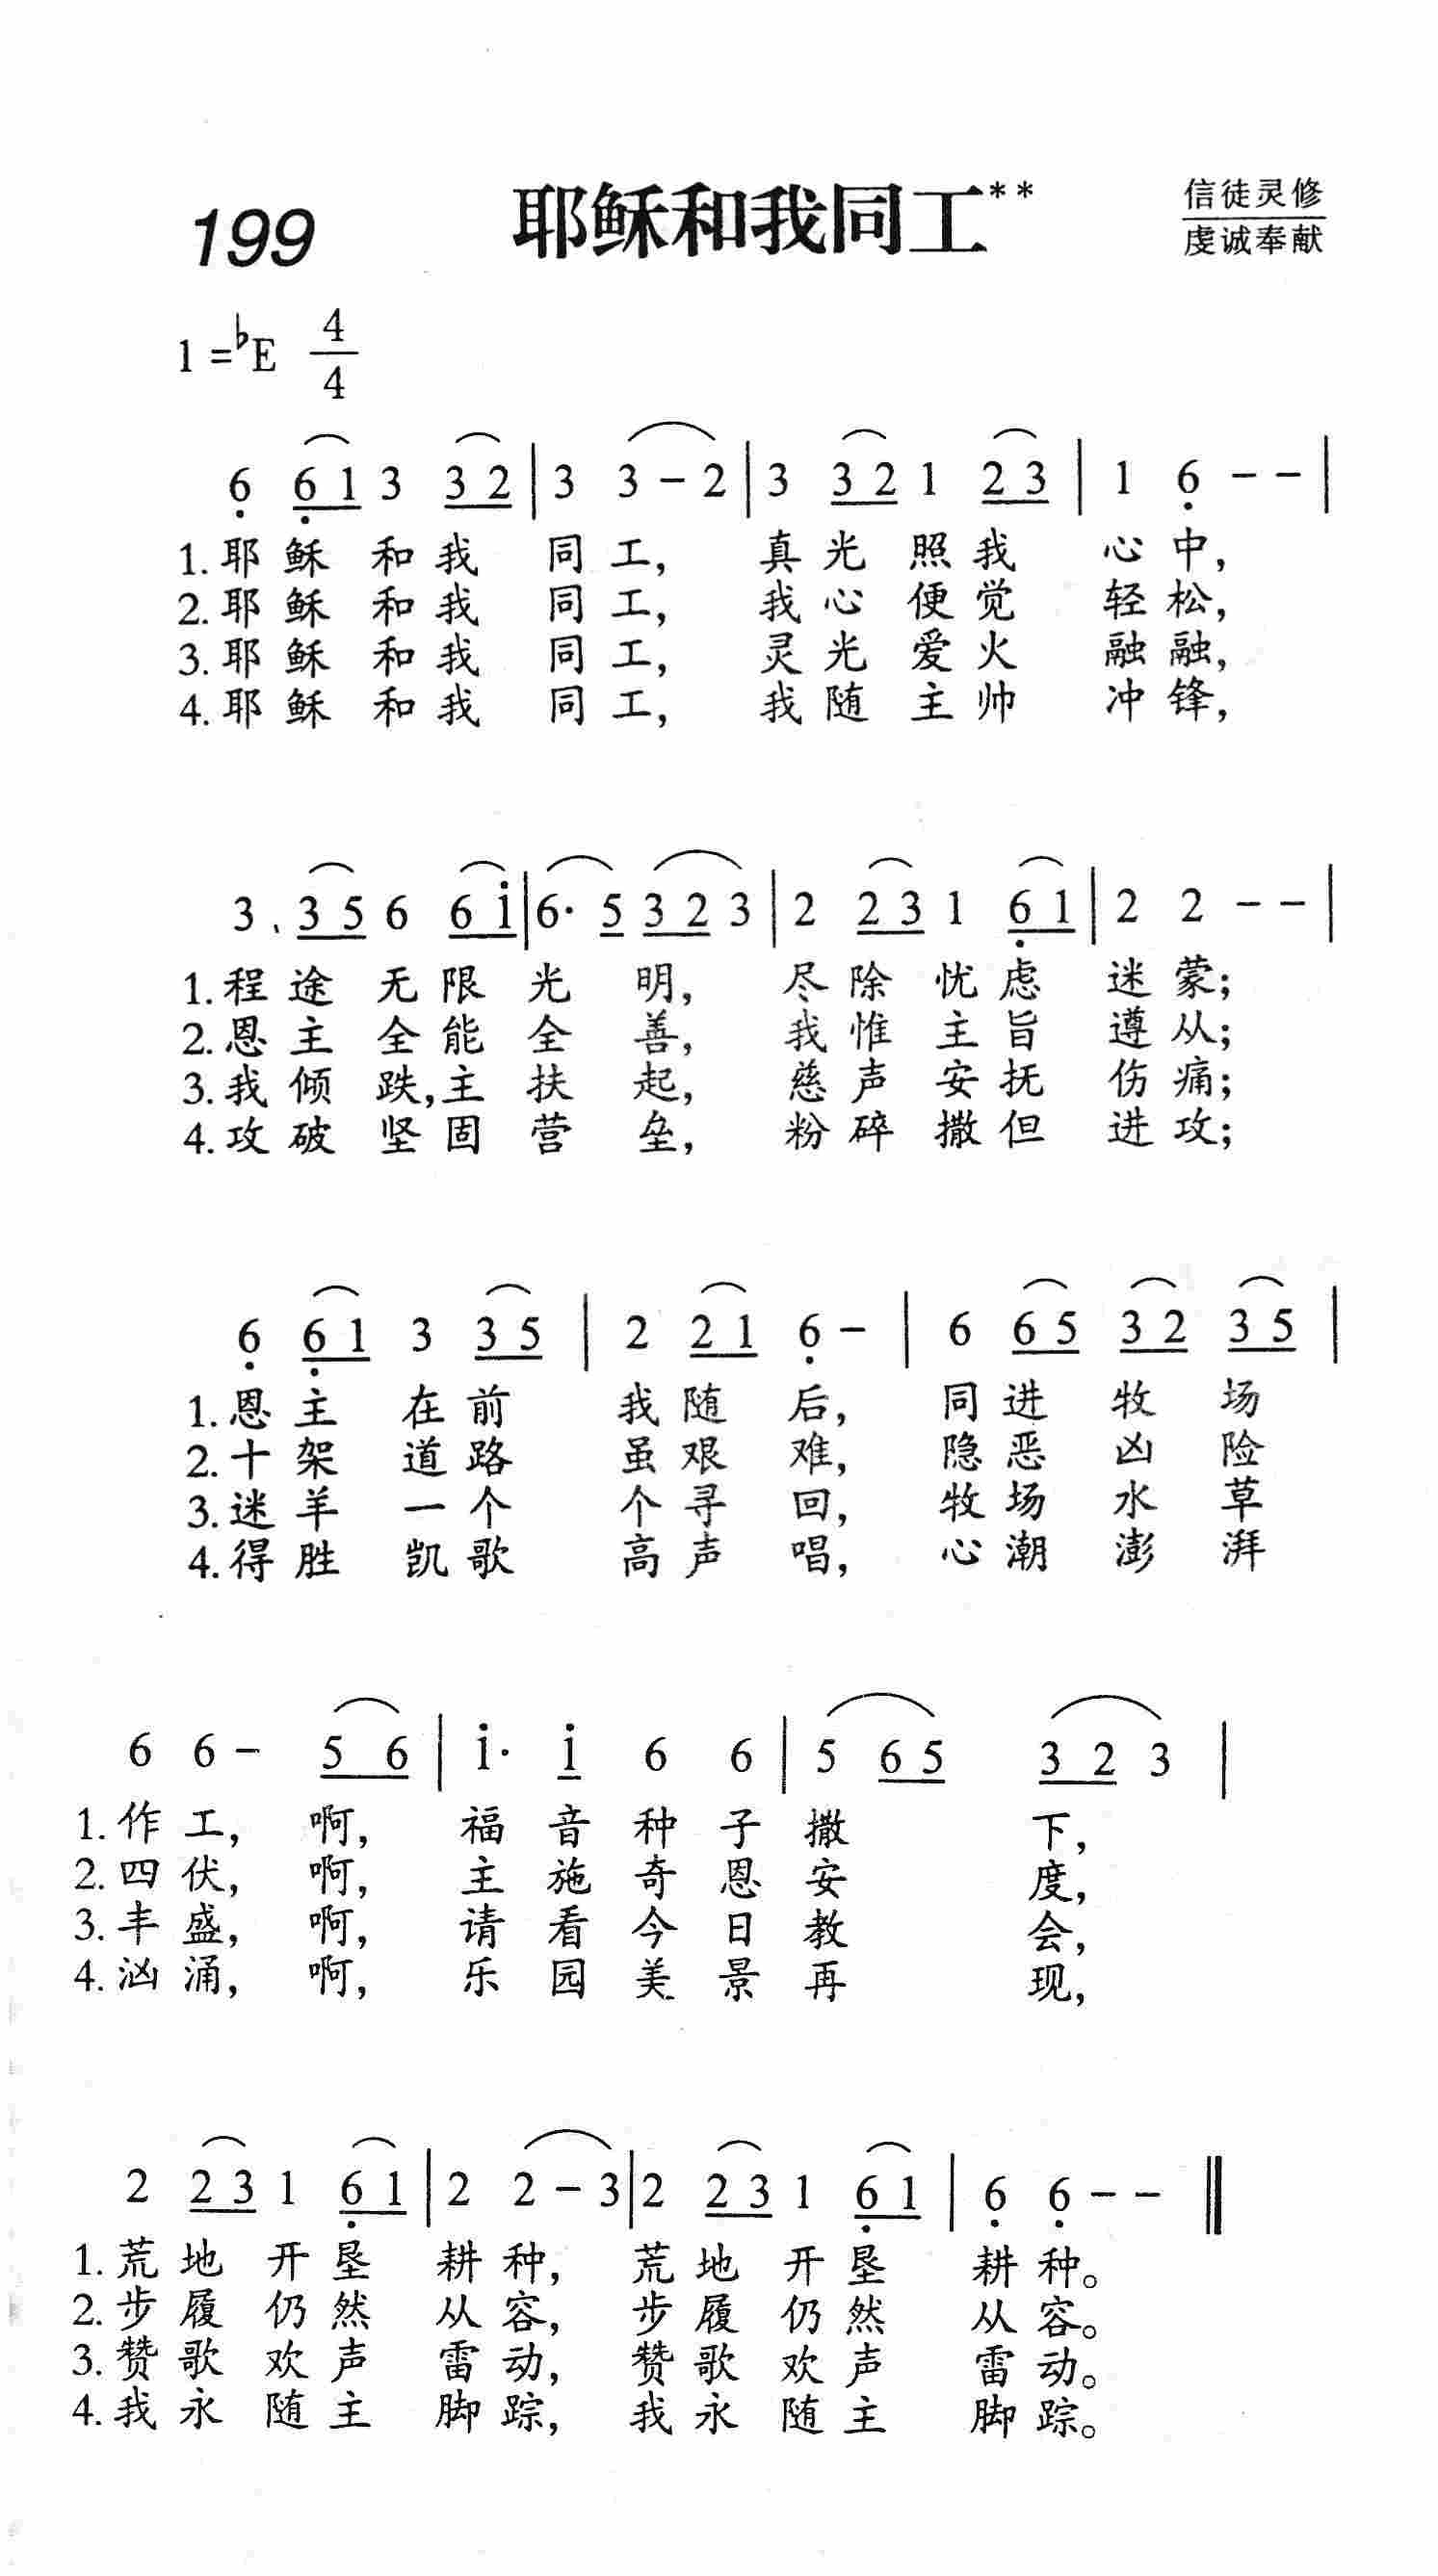 199 耶稣和我同工** 信徒灵修
虔诚奉献
1=♭E 4/4
6̣ 6̣ 1 3 3 2 | 3 3 - 2 | 3 3 2 1 2 3 | 1 6̣ - - |
1.耶稣和我同工，真光照我心中，
2.耶稣和我同工，我心便觉轻松，
3.耶稣和我同工，灵光爱火融融，
4.耶稣和我同工，我随主帅冲锋，
3 3 5 6 6 i | 6· 5 3 2 3 | 2 2 3 1 6̣ 1 | 2 2 - - |
1.程途无限光明，尽除忧虑迷蒙；
2.恩主全能全善，我惟主旨遵从；
3.我倾跌，主扶起，慈声安抚伤痛；
4.攻破坚固营垒，粉碎撒但进攻；
6̣ 6̣ 1 3 3 5 | 2 2 1 6̣ - | 6 6 5 3 2 3 5 |
1.恩主在前我随后，同进牧场
2.十架道路虽艰难，隐恶凶险
3.迷羊一个个寻回，牧场水草
4.得胜凯歌高声唱，心潮澎湃
6 6 - 5 6 | i· i 6 6 | 5 6 5 3 2 3 |
1.作工，啊，福音种子撒下，
2.四伏，啊，主施奇恩安度，
3.丰盛，啊，请看今日教会，
4.汹涌，啊，乐园美景再现，
2 2 3 1 6̣ 1 | 2 2 - 3 | 2 2 3 1 6̣ 1 | 6̣ 6̣ - - ‖
1.荒地开垦耕种，荒地开垦耕种。
2.步履仍然从容，步履仍然从容。
3.赞歌欢声雷动，赞歌欢声雷动。
4.我永随主脚踪，我永随主脚踪。